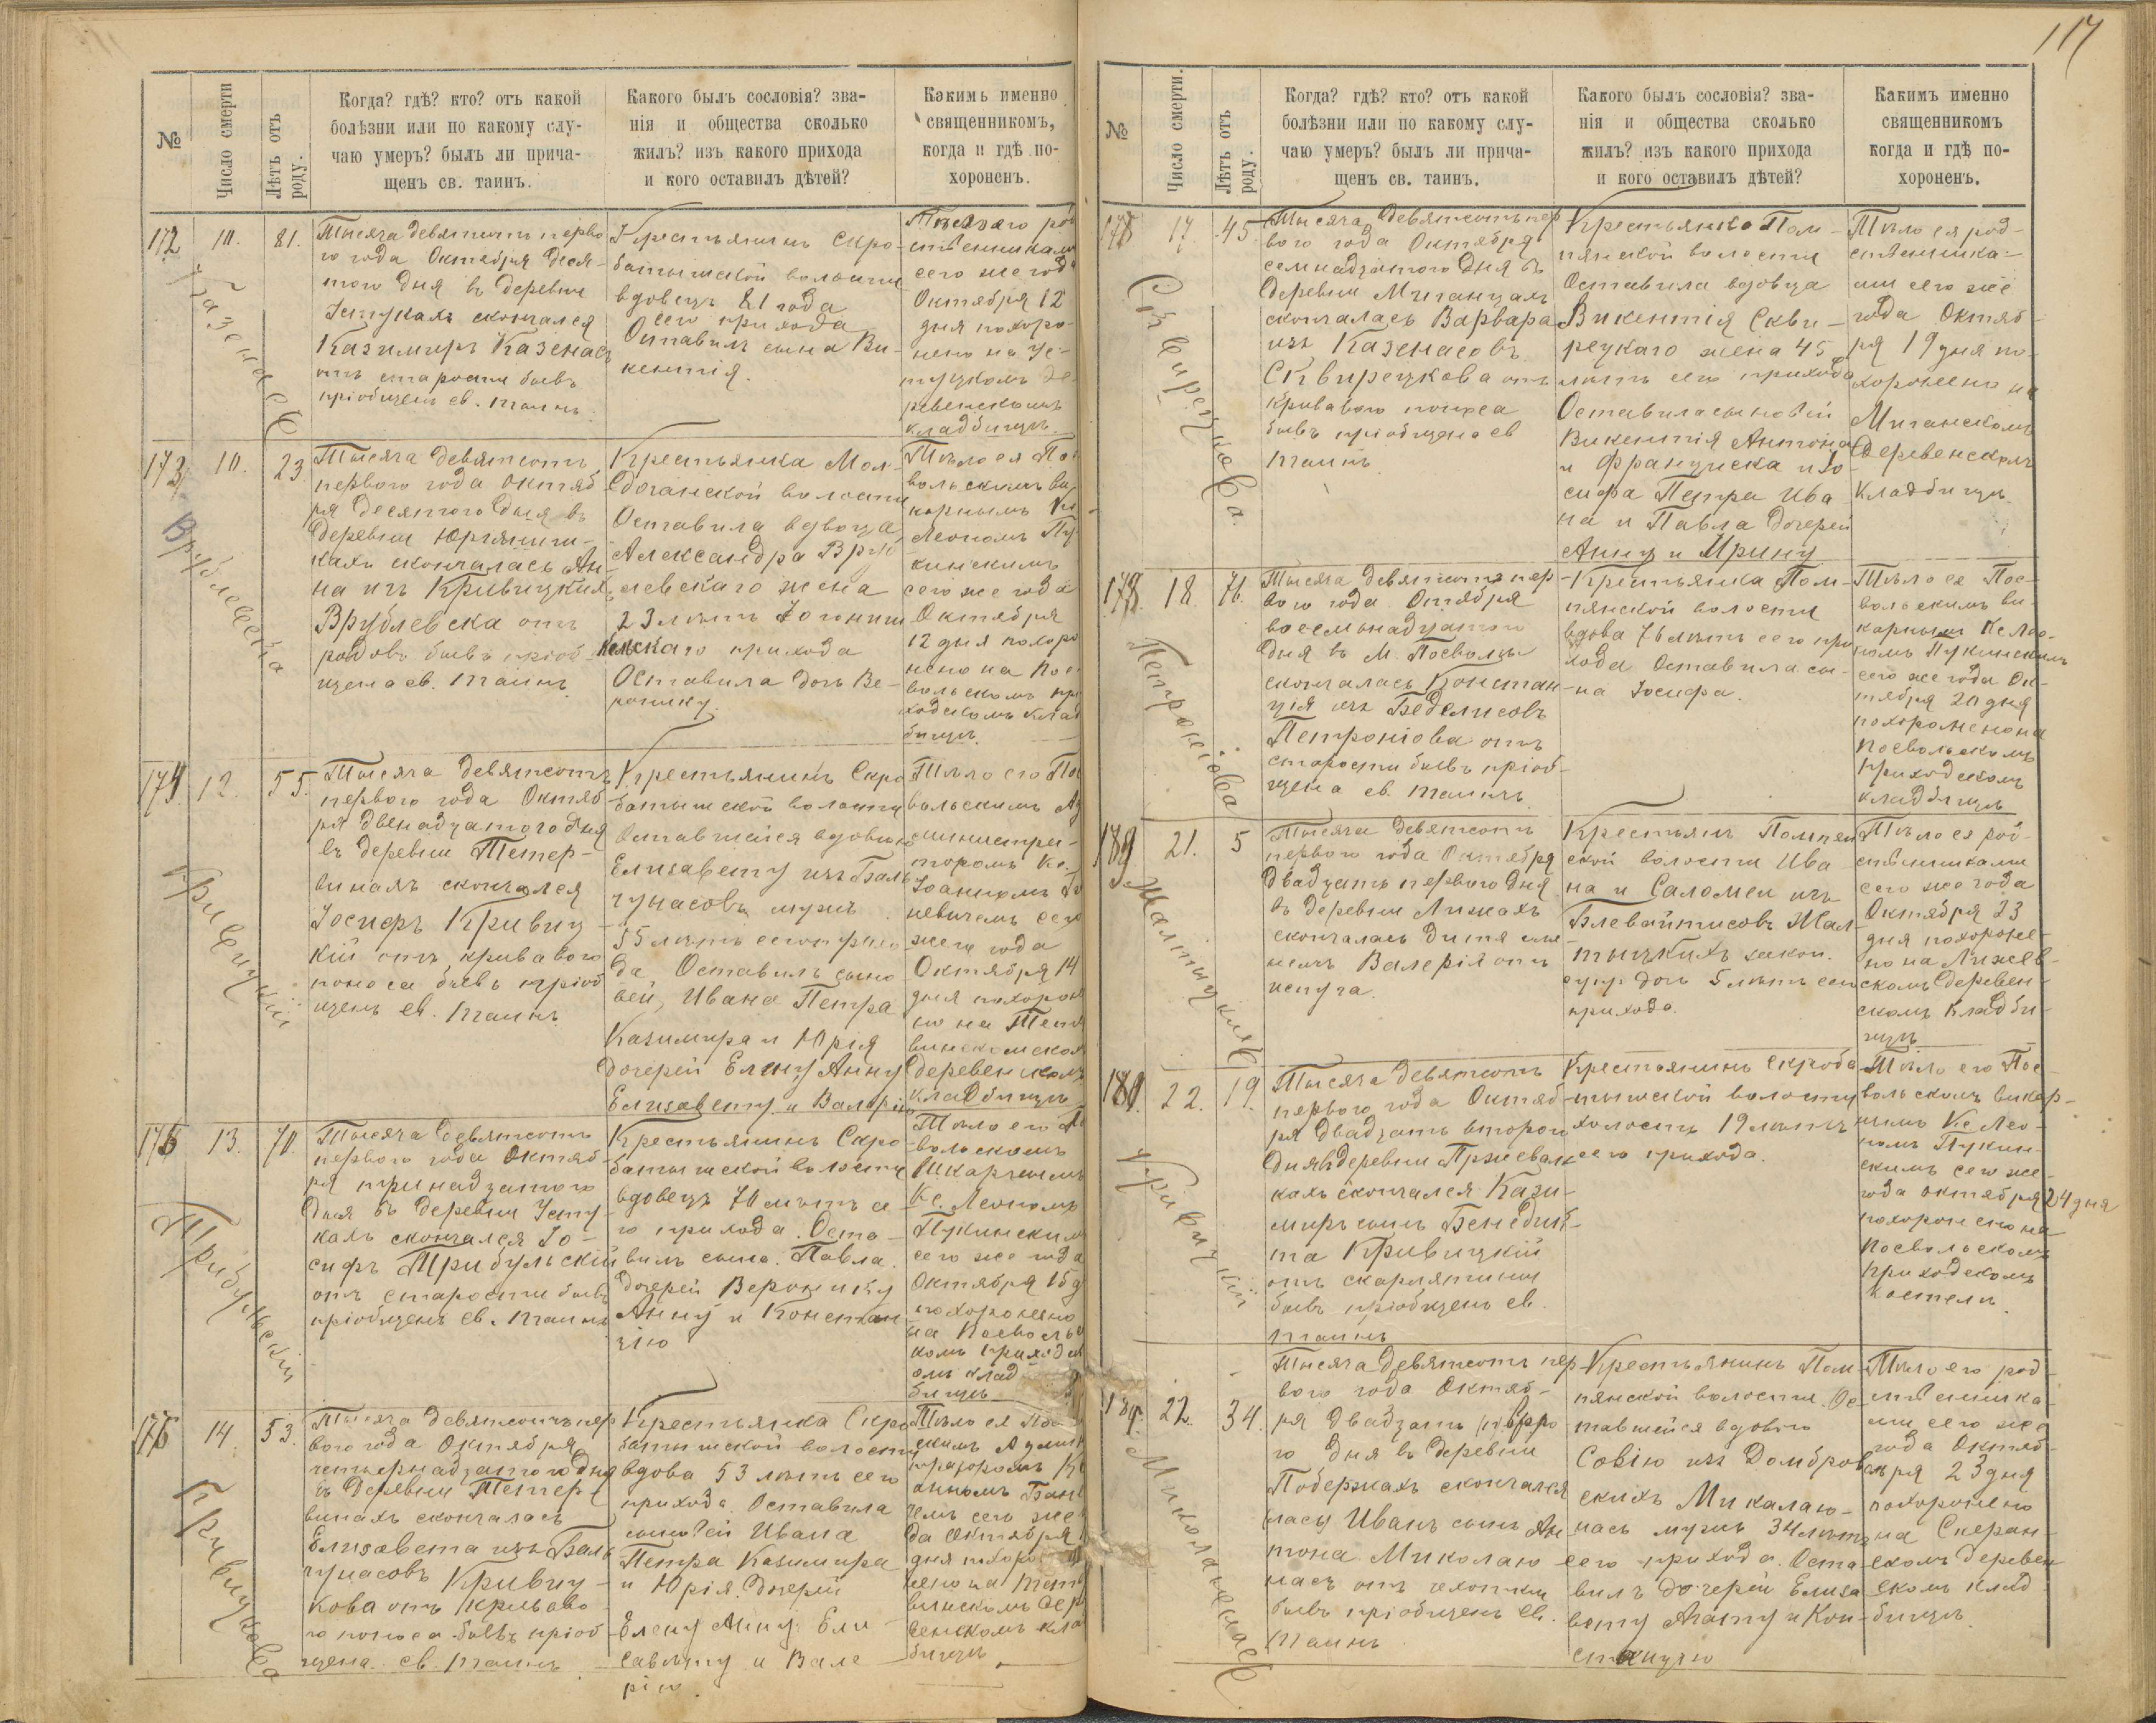 117
№
Число смерти
Лѣтъ отъ роду.
Когда? гдѣ? кто? отъ какой
болѣзни или по какому слу-
чаю умеръ? былъ ли прича-
щенъ св. таинъ.
Какого былъ сословія? зва-
нія и общества сколько
жилъ? изъ какого прихода
и кого оставилъ дѣтей?
Какимъ именно
священникомъ,
когда и гдѣ по-
хороненъ.
172
10.
81.
Казенасъ
Тысяча девятьсотъ перво
го года Октября деся-
того дня въ деревни
Устукахъ скончался
Казимиръ Казенасъ
отъ старости бывъ
пріобщенъ св. таинъ.
Крестьянинъ Скро-
батишской волости
вдовецъ 81 года
сего прихода
Оставилъ сына Ви-
кентія.
сего же года
Октября 12
дня похоро-
нено на Ус-
тукскомъ де
ревенскомъ
кладбищѣ.
173
10.
23
Врублевска
Тысяча девятьсотъ
первого года октяб
ря десятого дня въ
деревни Юргяниш-
кахъ скончалась Ан-
на изъ Кривицкихъ
Врублевска отъ
родовъ бывъ пріоб-
щена св. таинъ
Крестьянка
волости
Оставила вдовца
Александра Вруб
левскаго жена
23 лѣтъ
прихода
Оставила дочь Ве-
ронику.
Тѣло ея По
вольскимъ ви
карнымъ Кс
Леономъ Пу
кинскимъ
сего же года
Октября
12 дня похоро
нено на Пос
вольскомъ при
ходскомъ клад
бищѣ.
174
12.
55.
Кривицкій
Тысяча девятьсотъ
первого года Октяб
ря двенадцатого дня
въ деревни Тетер-
винахъ скончался
Іосифъ Кривиц-
кій отъ кривавого
поноса бывъ пріоб
щенъ св. таинъ
Крестьянинъ Скро
батишской волости
оставшейся вдовою
Елизавету изъ Баль
чунасовъ мужъ
55 лѣтъ сего прихо
да Оставилъ сыно
вей, Ивана Петра
Казимира и Юрія
дочерей Елену Анну
Елизавету и Валерію
Тѣло его Пос
вольскимъ Ад
министра-
торомъ Кс.
Іоанномъ
невичемъ сего
же года
Октября 14
дня похорон
но на
деревенскомъ
кладбищѣ
175
13.
70.
Трибульскій
Тысяча девятьсотъ
первого года Октяб
ря тринадцатого
дня въ деревни Усту-
кахъ скончался Іо-
сифъ Трибульскій
отъ старости бывъ
пріобщенъ св. таинъ
Крестьянинъ Скро
батишской волости
вдовецъ 70 лѣтъ се
го прихода. Оста-
вилъ сына. Павла.
дочерей Веронику
Анну и Констан
цію
Тѣло его По
вольскимъ
Викарнымъ
Кс. Леономъ
Пукинскимъ
сего же года
Октября 15 д
похоронено
на Посволь
комъ приходск
омъ клад
бищѣ
176
14.
53.
Кривицкова
Тысяча девятьсотъ пер
вого года Октября
четырнадцатого дня
въ деревни Тетер-
винахъ скончалась
Елизавета изъ Баль
чунасовъ Кривиц-
кова отъ кривава
го поноса бывъ пріоб
щена св. таинъ
Крестьянка Скро
батишской волости
вдова 53 лѣтъ сего
прихода. Оставила
сыновей Ивана
Петра Казимира
и Юрія. дочерей
Елену Анну Ели
савету и Вале
рію.
Тѣло ея
скимъ Админ
чемъ сего же
да Октября
дня похоро
нено на Тет
винскомъ дер
венскомъ кла
бищѣ
№
Число смерти.
Лѣтъ отъ роду.
Когда? гдѣ? кто? отъ какой
болѣзни или по какому слу-
чаю умеръ? былъ ли прича-
щенъ св. таинъ.
Какого былъ сословія? зва-
нія и общества сколько
жилъ? изъ какого прихода
и кого оставилъ дѣтей?
Какимъ именно
священникомъ
когда и гдѣ по-
хороненъ.
17.
45
Сквирецкова.
Тысяча девятьсотъ пер
вого года Октября
семнадцатого дня въ
деревни Миганцахъ
скончалась Варвара
изъ Казенасовъ
Сквирецкова отъ
кривавого поноса
бывъ пріобщена св
таинъ
Крестьянка Пом-
пянской волости
Оставила вдовца
Викентія Скви-
рецкаго жена 45
лѣтъ сего прихода
Оставила сыновей
Викентія Антона
и Француска и Іо-
сифа Петра Ива
на и Павла дочерей
Анну и Ирину
Тѣло ея род-
ственника-
ми сего же
года Октяб-
ря 19 дня по-
хоронено на
Миганскомъ
деревенскомъ
кладбищѣ.
18.
76.
Петроніова
Тысяча девятьсотъ пер
вого года. Октября
восемьнадцатого
дня въ М. Посволѣ
скончалась Констан
ція изъ Беделисовъ
Петроніова отъ
старости бывъ пріоб-
щена св. таинъ
Крестьянка Пом-
пянской волости
вдова 76 лѣтъ сего при
хода Оставила сы-
на Іосифа.
Тѣло ея Пос-
вольскимъ ви-
карнымъ Кс Лео-
номъ Пукинскимъ
сего же года Ок-
тября 20 дня
похоронено на
Посвольскомъ
приходскомъ
кладбищѣ
21.
5
Тысяча девятьсотъ
первого года Октября
двадцать первого дня
въ деревни Лижахъ
скончалась дитя име
немъ Валерія отъ
испуга.
Крестьянъ Помпян
ской волости Ива
на и Саломеи изъ
закон.
супр дочь 5 лѣтъ сего
прихода.
Тѣло ея род-
ственниками
сего же года
Октября 23
дня похороне-
но на Лижев-
скомъ деревен-
скомъ кладби-
щѣ
22.
19.
Кривицкій
Тысяча девятьсотъ
первого года Октяб-
ря двадцать второго
дня въ деревни
кахъ скончался Кази-
миръ сынъ Бенедик-
та Кривицкій
отъ скарлятины
бывъ пріобщенъ св.
таинъ
Крестьянинъ Скроба
тишской волости
холостъ 19 лѣтъ
сего прихода.
Тѣло его Пос-
вольскимъ викар-
нымъ Кс Лео-
номъ Пукин-
скимъ сего же
года октября 24 дня
похоронено на
Посвольскомъ
приходскомъ
костелѣ.
22.
34.
Миколаюнасъ
Тысяча девятьсотъ пер
вого года Октяб-
ря двадцать второ
го дня въ деревни
Побержахъ скончался
Иванъ сынъ Ан
тона Миколаю
насъ отъ чехотки
бывъ пріобщенъ св.
таинъ
Крестьянинъ Пом-
пянской волости. Ос-
тавшейся вдовою
Совію изъ Домбров
скихъ Микалаю-
насъ мужъ 34 лѣтъ
сего прихода. Оста-
вилъ дочерей Елиза
вету Агату и Кон-
станцію
Тѣло его род-
ственника
ми сего же
года Октяб-
ря 23 дня
похоронено
на Скеран-
скомъ деревен
скомъ клад-
бищѣ